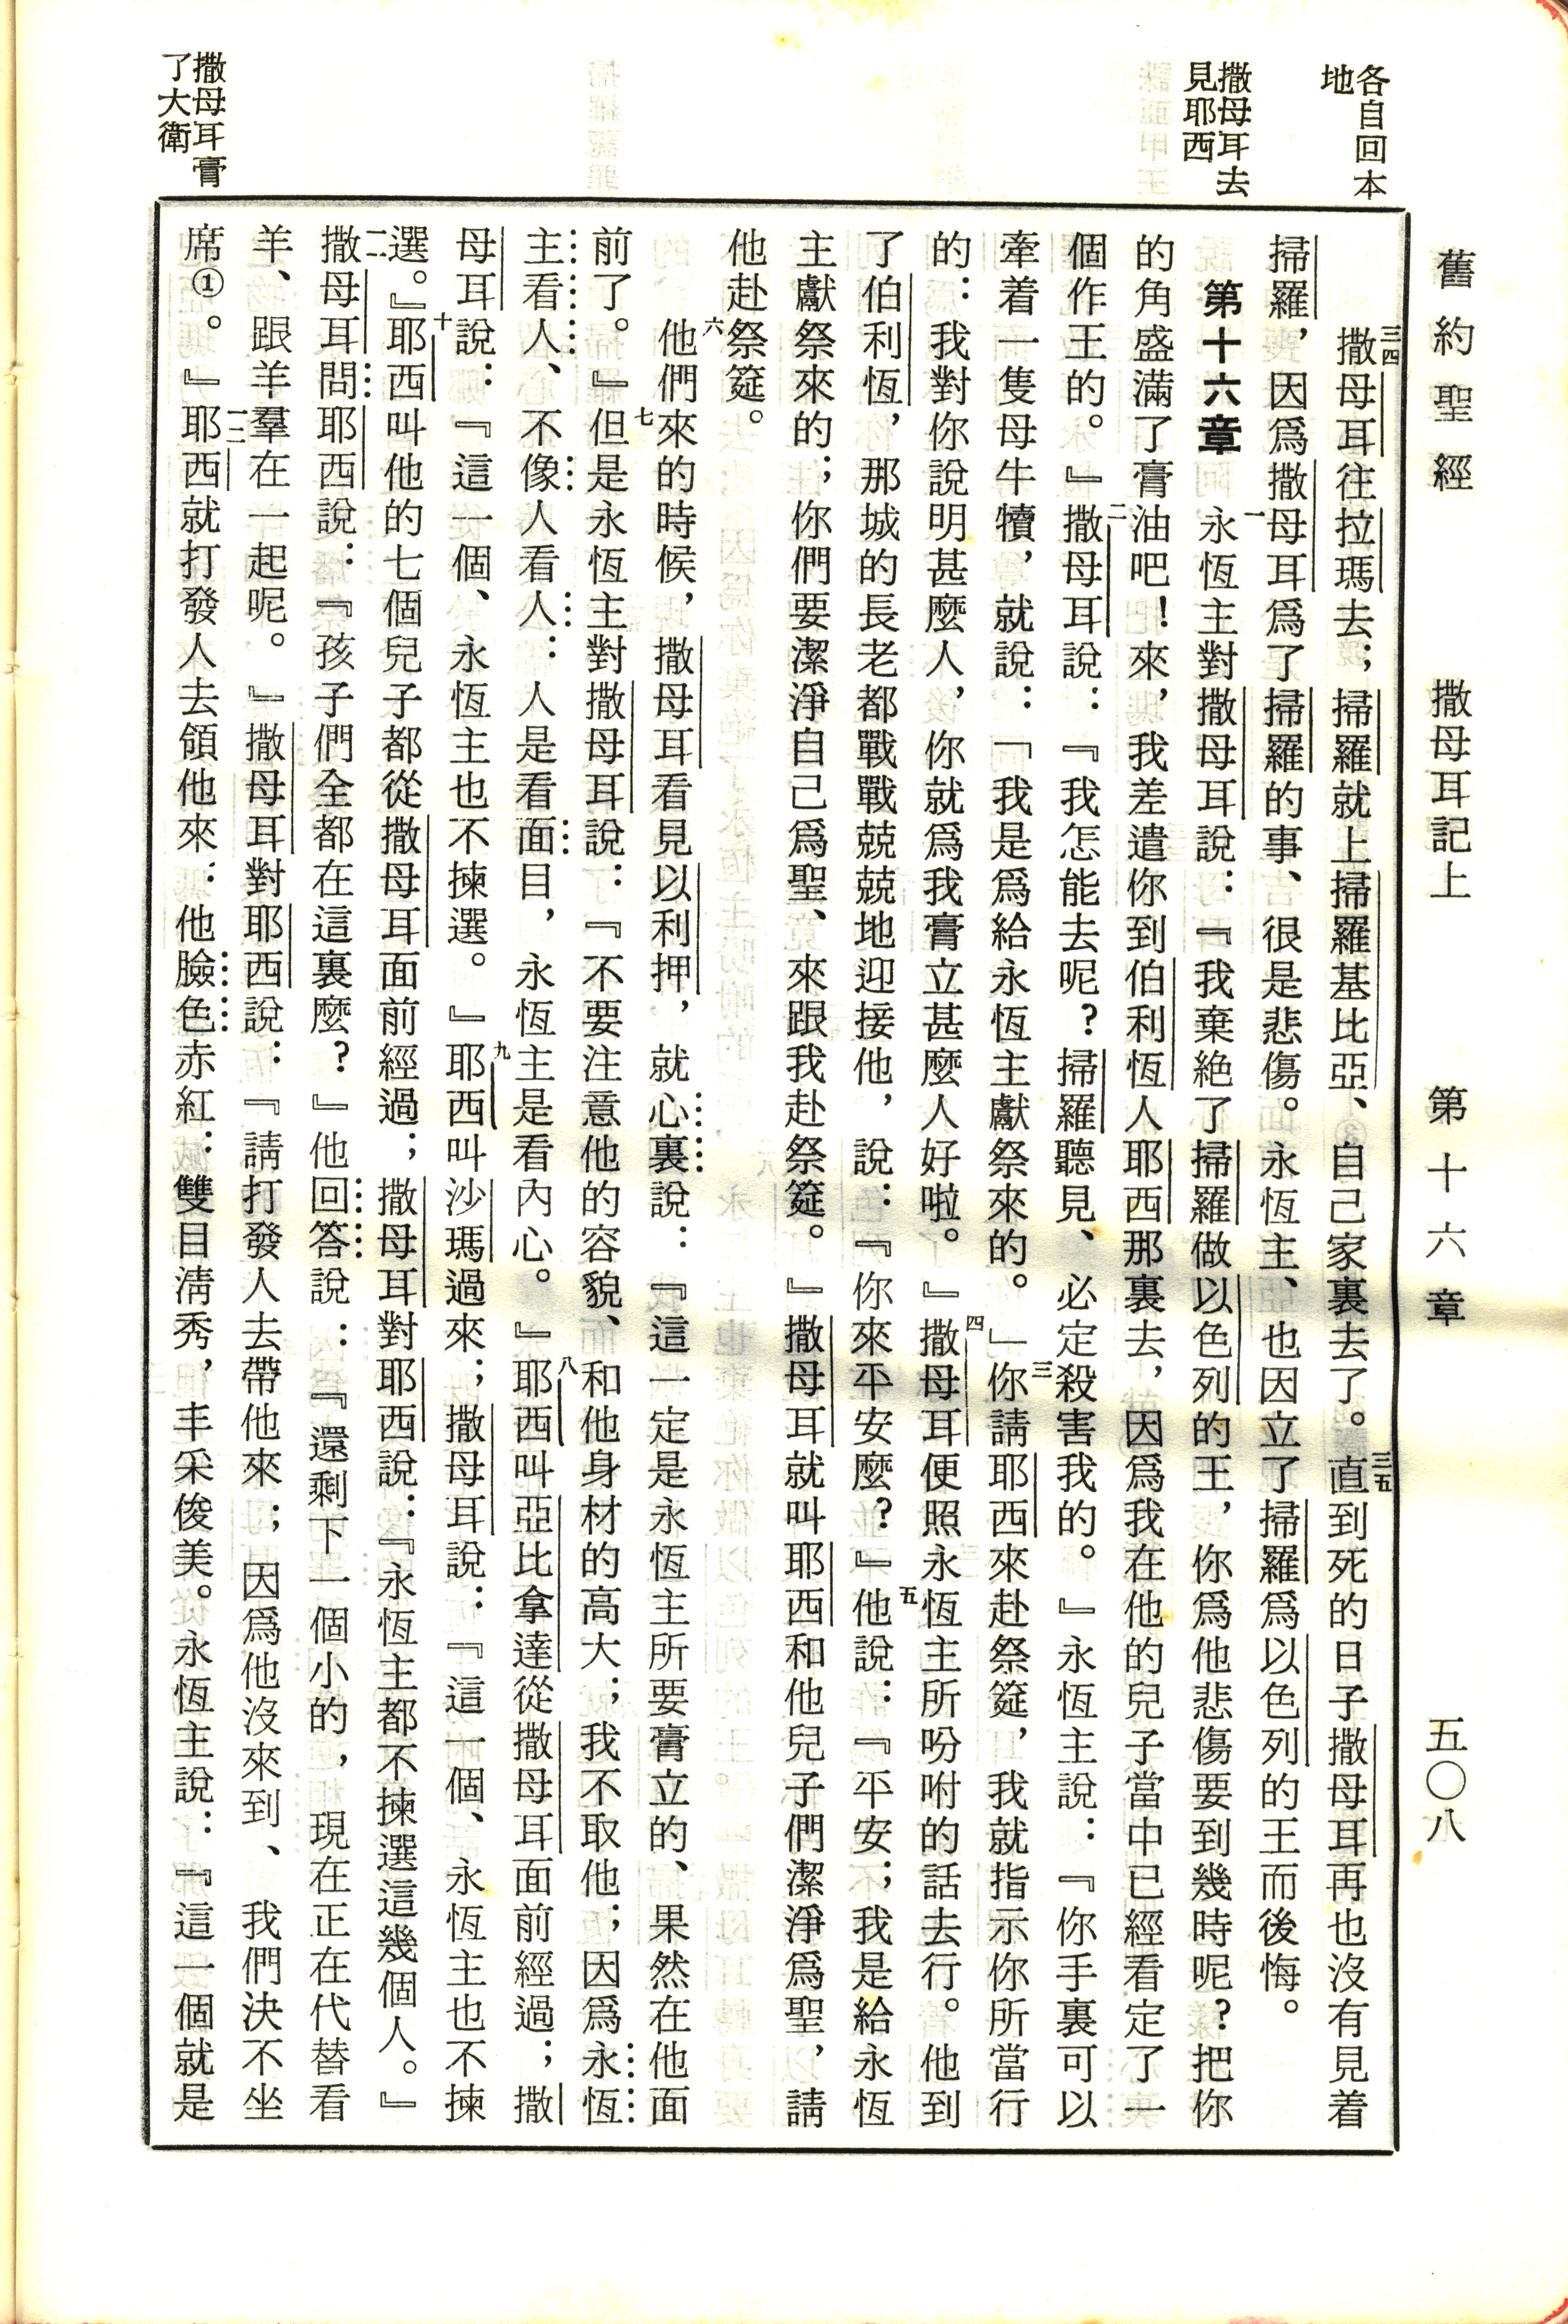 舊約聖經 撒母耳記上 第十六章 五〇八
各自回本
地
撒母耳去
見耶西
撒母耳膏
了大衛
三四撒母耳往拉瑪去；掃羅就上掃羅基比亞、自己家裏去了。三五直到死的日子撒母耳再也沒有見着
掃羅，因爲撒母耳爲了掃羅的事、很是悲傷。永恆主、也因立了掃羅爲以色列的王而後悔。
第十六章 一永恆主對撒母耳說：『我棄絕了掃羅做以色列的王，你爲他悲傷要到幾時呢？把你
的角盛滿了膏油吧！來，我差遣你到伯利恆人耶西那裏去，因爲我在他的兒子當中已經看定了一
個作王的。』二撒母耳說：『我怎能去呢？掃羅聽見、必定殺害我的。』永恆主說：『你手裏可以
牽着一隻母牛犢，就說：「我是爲給永恆主獻祭來的。」三你請耶西來赴祭筵，我就指示你所當行
的：我對你說明甚麼人，你就爲我膏立甚麼人好啦。』四撒母耳便照永恆主所吩咐的話去行。他到
了伯利恆，那城的長老都戰戰兢兢地迎接他，說：『你來平安麼？』五他說：『平安；我是給永恆
主獻祭來的；你們要潔淨自己爲聖、來跟我赴祭筵。』撒母耳就叫耶西和他兒子們潔淨爲聖，請
他赴祭筵。
六他們來的時候，撒母耳看見以利押，就心裏說：『這一定是永恆主所要膏立的、果然在他面
前了。』七但是永恆主對撒母耳說：『不要注意他的容貌、和他身材的高大；我不取他；因爲永恆
主看人、不像人看人：人是看面目，永恆主是看內心。』八耶西叫亞比拿達從撒母耳面前經過；撒
母耳說：『這一個、永恆主也不揀選。』九耶西叫沙瑪過來；撒母耳說：『這一個、永恆主也不揀
選。』十耶西叫他的七個兒子都從撒母耳面前經過；撒母耳對耶西說：『永恆主都不揀選這幾個人。』
一一撒母耳問耶西說：『孩子們全都在這裏麼？』他回答說：『還剩下一個小的，現在正在代替看
羊、跟羊羣在一起呢。』撒母耳對耶西說：『請打發人去帶他來；因爲他沒來到、我們決不坐
席①。』一二耶西就打發人去領他來：他臉色赤紅：雙目淸秀，丰采俊美。永恆主說：『這一個就是